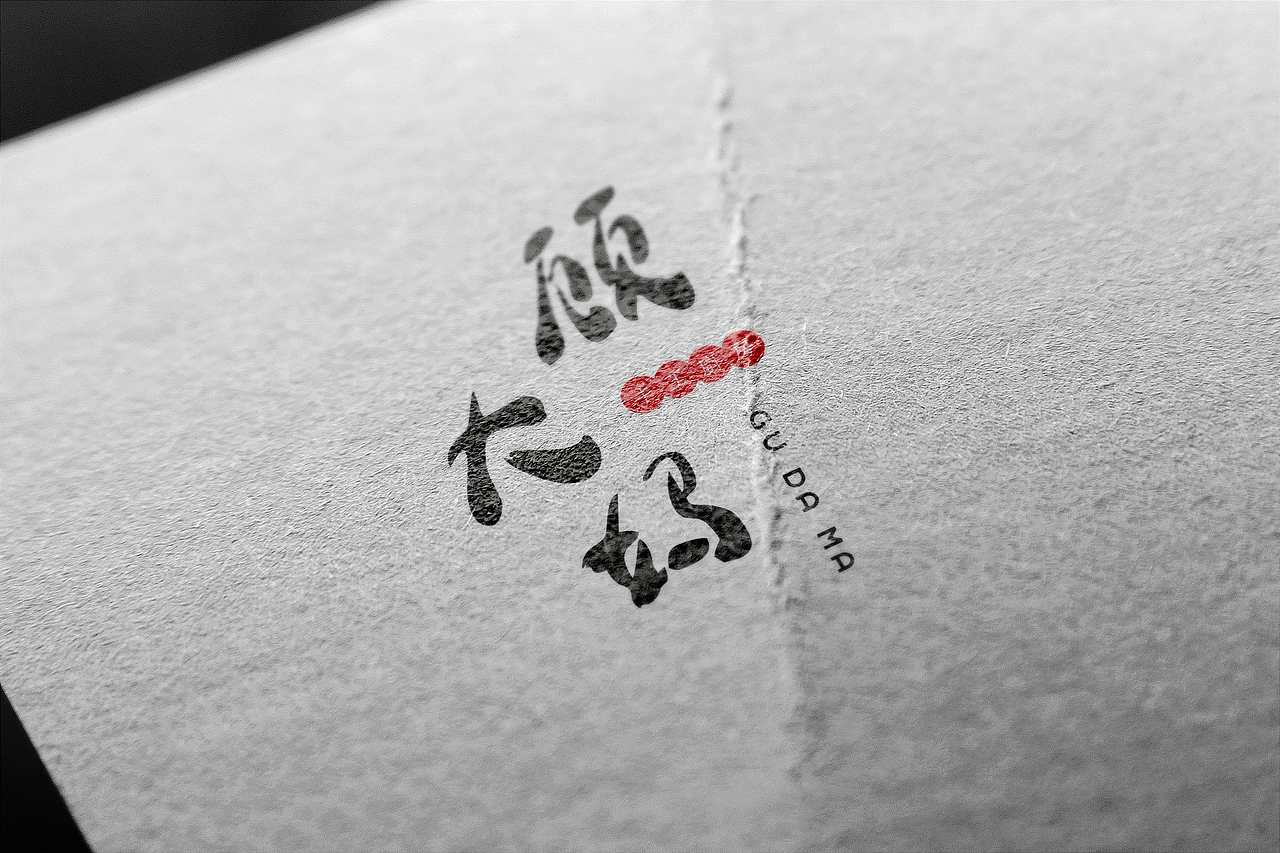 顾
大妈
GU DA MA